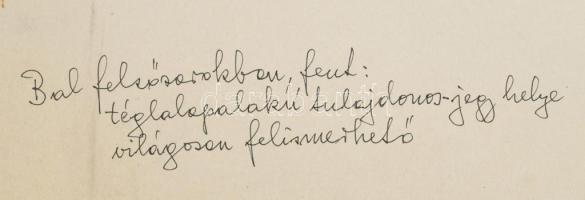 Bal felsősarokban, fent:
téglalapalakú tulajdonos-jegy helye
világosan felismerhető